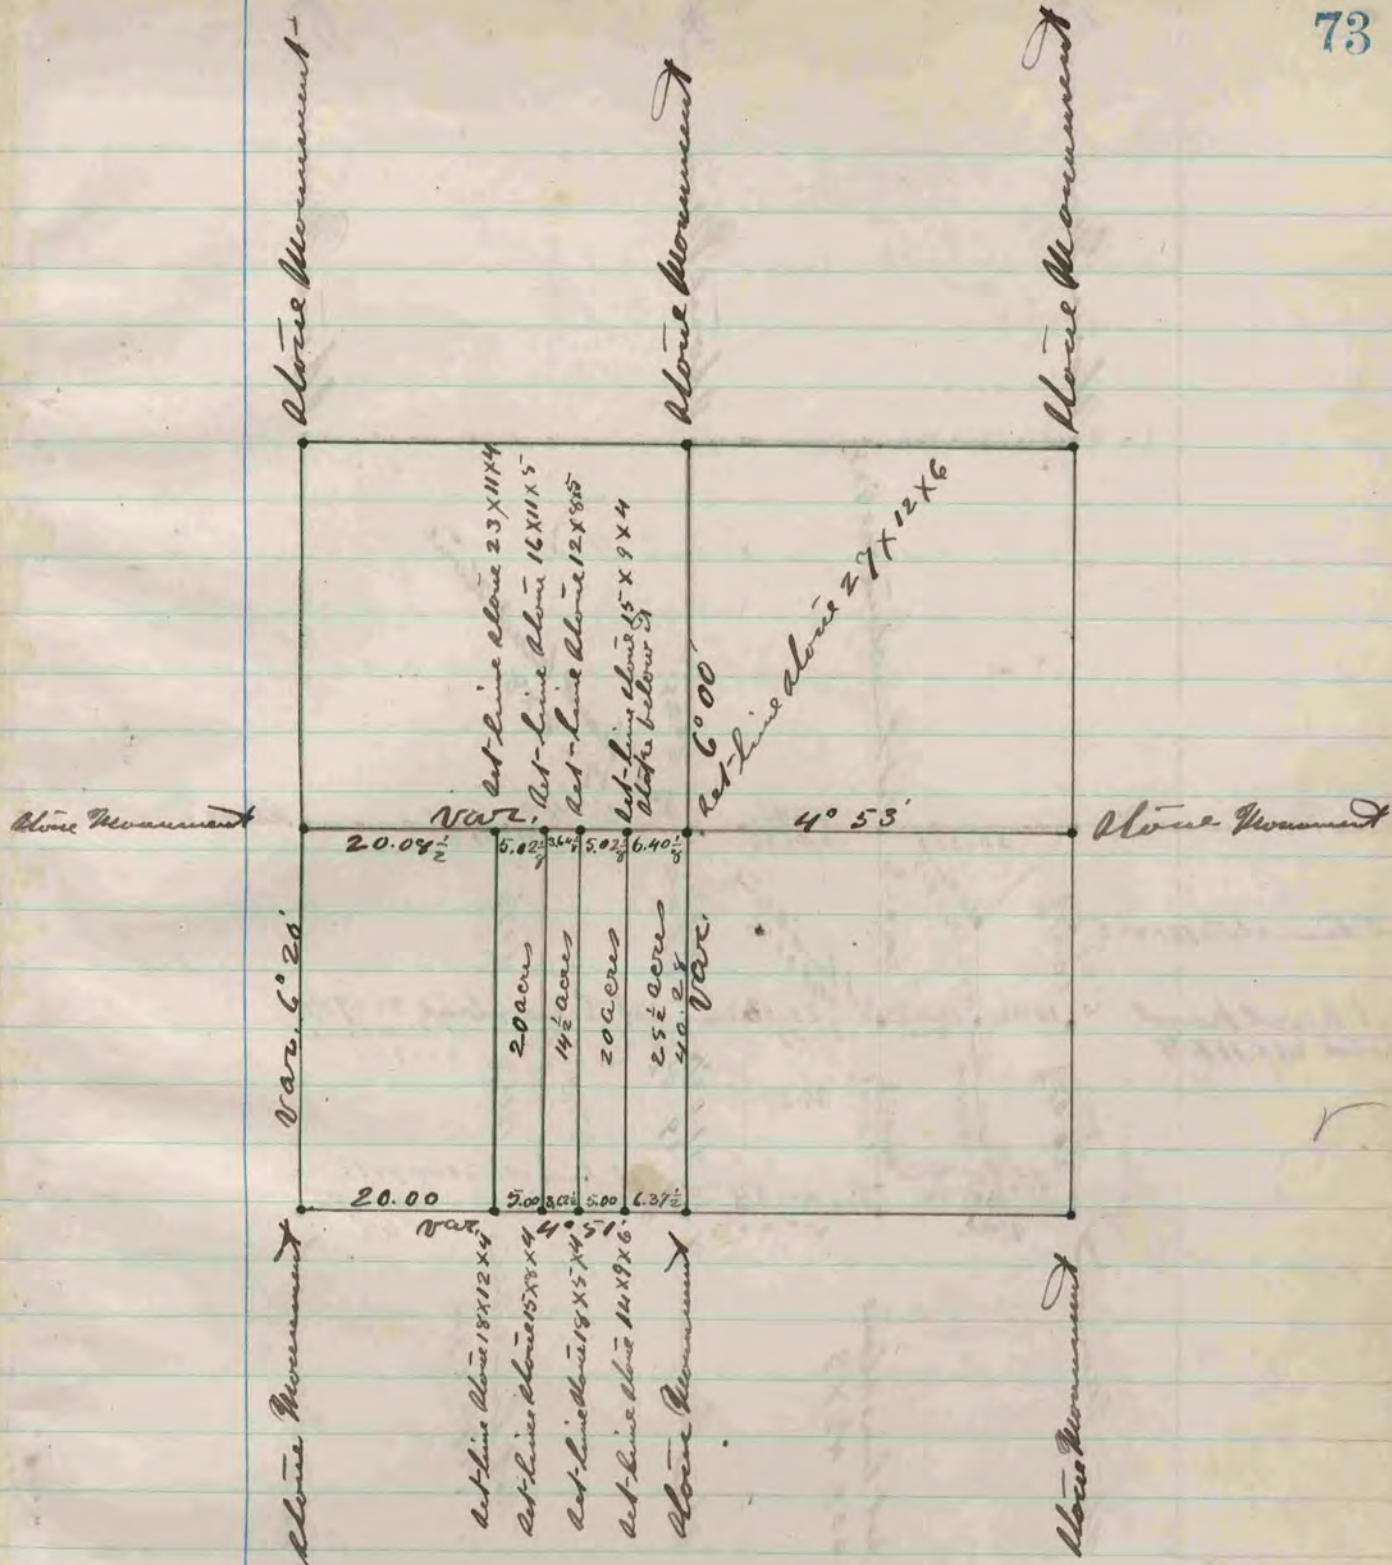 73
Stone Monument
Stone Monument
Stone Monument
Set lime stone 23 X 11 X 4
Set lime stone 16 X 11 X 5
Set lime stone 12 X 8 X 5
Set lime stone 15 X 9 X 4
Stake below it
6° 00'
Set lime stone 27 X 12 X 6
Stone Monument
Var.
4° 53'
Stone Monument
20.08 1/2
5.02 1/8
5.02 1/8
6.40 1/8
Var. 6° 20'
20 acres
14 1/2 acres
20 acres
25 1/2 acres
40.28
Var.
20.00
5.00
5.00
6.37 1/2
Var. 4° 51'
Stone Monument
Set lime stone 18 X 12 X 4
Set lime stone 15 X 8 X 4
Set lime stone 18 X 5 X 4
Set lime stone 14 X 9 X 6
Stone Monument
Stone Monument